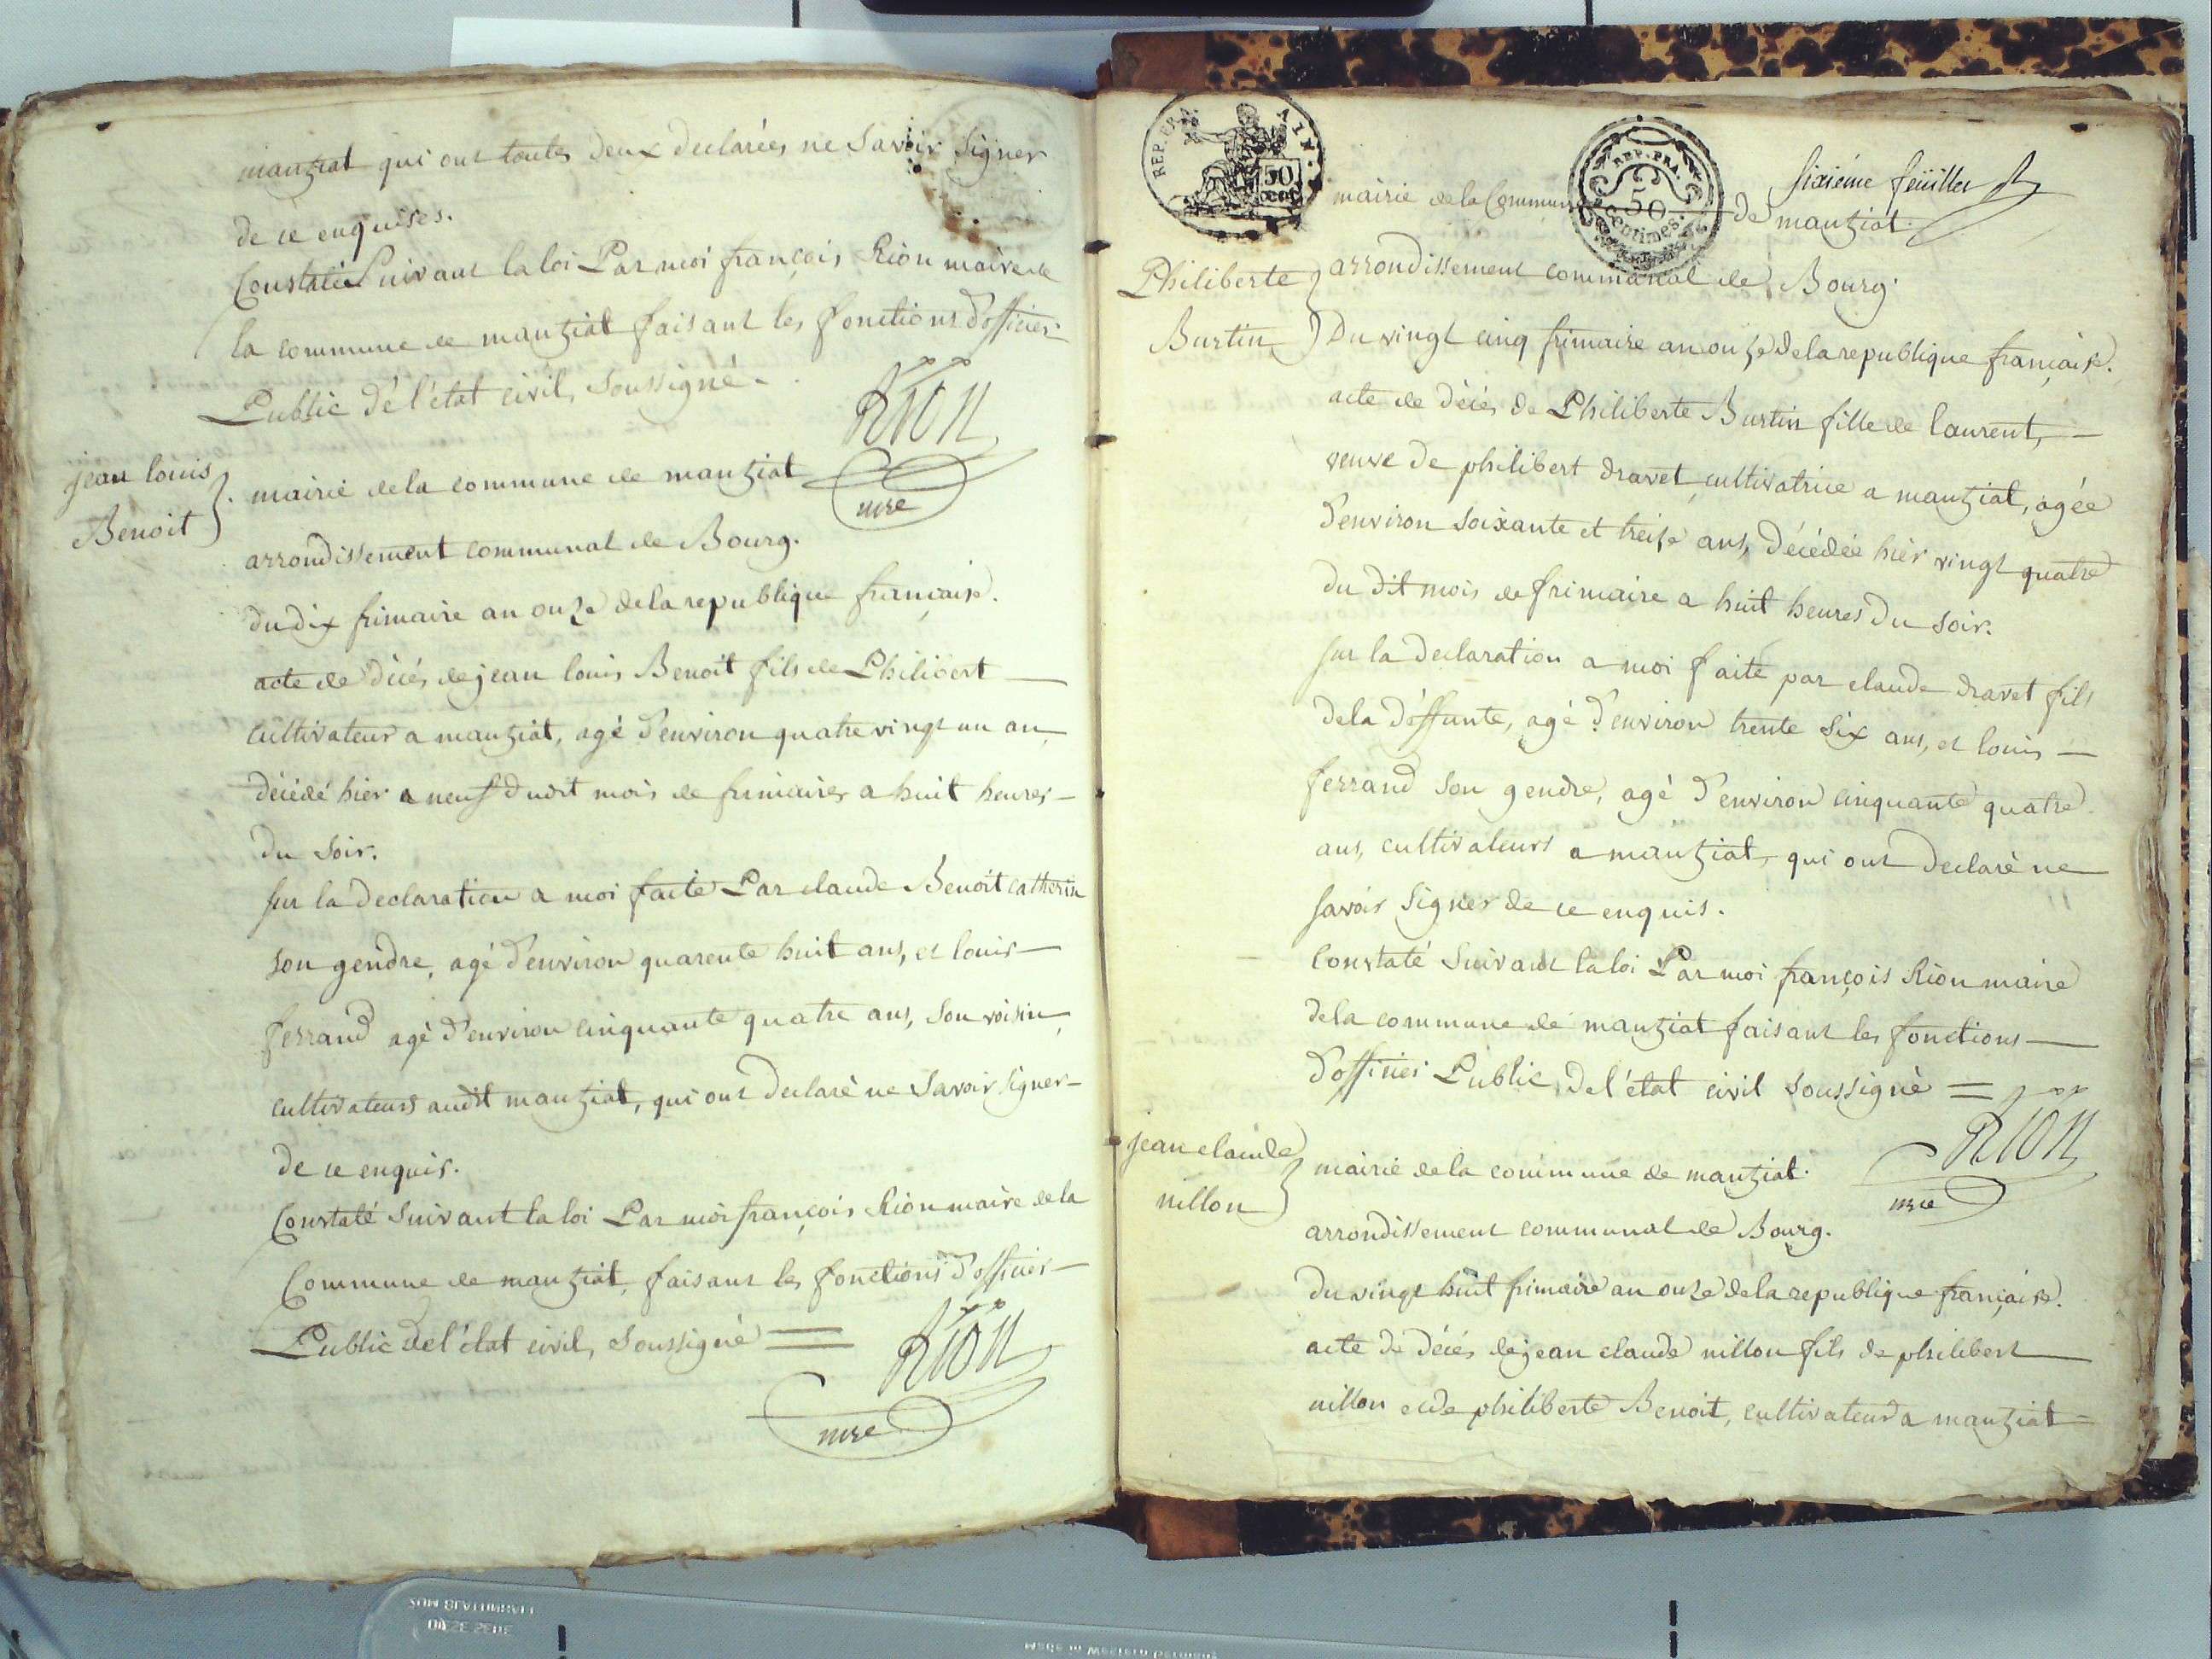 manziat qui ont toutes deux declarées ne Savoir Signer
de ce enquises.
Constaté Suivant la loi Par moi françois Rion maire de
la commune de manziat faisant les fonctions d'officier
Public dé l'état civil, Soussigné.
RION
mre
jean louis
Benoit
mairie de la commune de manziat
arrondissement communal de Bourg.
du dix frimaire an onze de la republique française.
acte de décés de jean louis Benoit fils de Philibert
Cultivateur a manziat, agé d'environ quatre vingt un an,
décédé hier a neuf dudit mois de frimaire a huit heures
du Soir.
Sur la declaration a moi faite Par claude Benoit catherin
son gendre, agé d'environ quarente huit ans, et louis
ferrand agé d'environ cinquante quatre ans, Son voisin,
cultivateurs audit manziat, qui ont declaré ne Savoir Signer
de ce enquis.
Constaté Suivant la loi Par moi françois Rion maire de la
Commune de manziat, faisant les fonctions d'officier
Public de l'état civil, Soussigné
RION
mre
REP. FRA.
AIN.
50
REP. FRA.
50
centimes.
Sixiéme feüillet
mairie de la Commune de manziat.
Philiberte
Burtin
arrondissement communal de Bourg.
Du vingt cinq frimaire an onze de la republique française.
acte de décés de Philiberte Burtin fille de laurent,
veuve de philibert dravet cultivatrice a manziat, agée
d'environ Soixante et treize ans, décédée hièr vingt quatre
du dit mois de frimaire a huit heures du Soir.
Sur la declaration a moi faite par claude dravet fils
de la déffunte, agé d'environ trente Six ans, et louis
ferrand Son gendre, agé d'environ cinquante quatre
ans, cultivateurs a manziat, qui ont declaré ne
Savoir Signer de ce enquis.
Constaté Suivant la loi Par moi françois Rion maire
de la commune de manziat faisant les fonctions
d'officier Public de l'état civil Soussigné
RION
mre
jean claude
nillon
mairie de la commune de manziat.
arrondissement communal de Bourg.
Du vingt huit frimaire an onze de la republique française.
acte de décés de jean claude nillon fils de philibert
nillon et de philiberte Benoit, cultivateur a manziat
Made in Western Germany